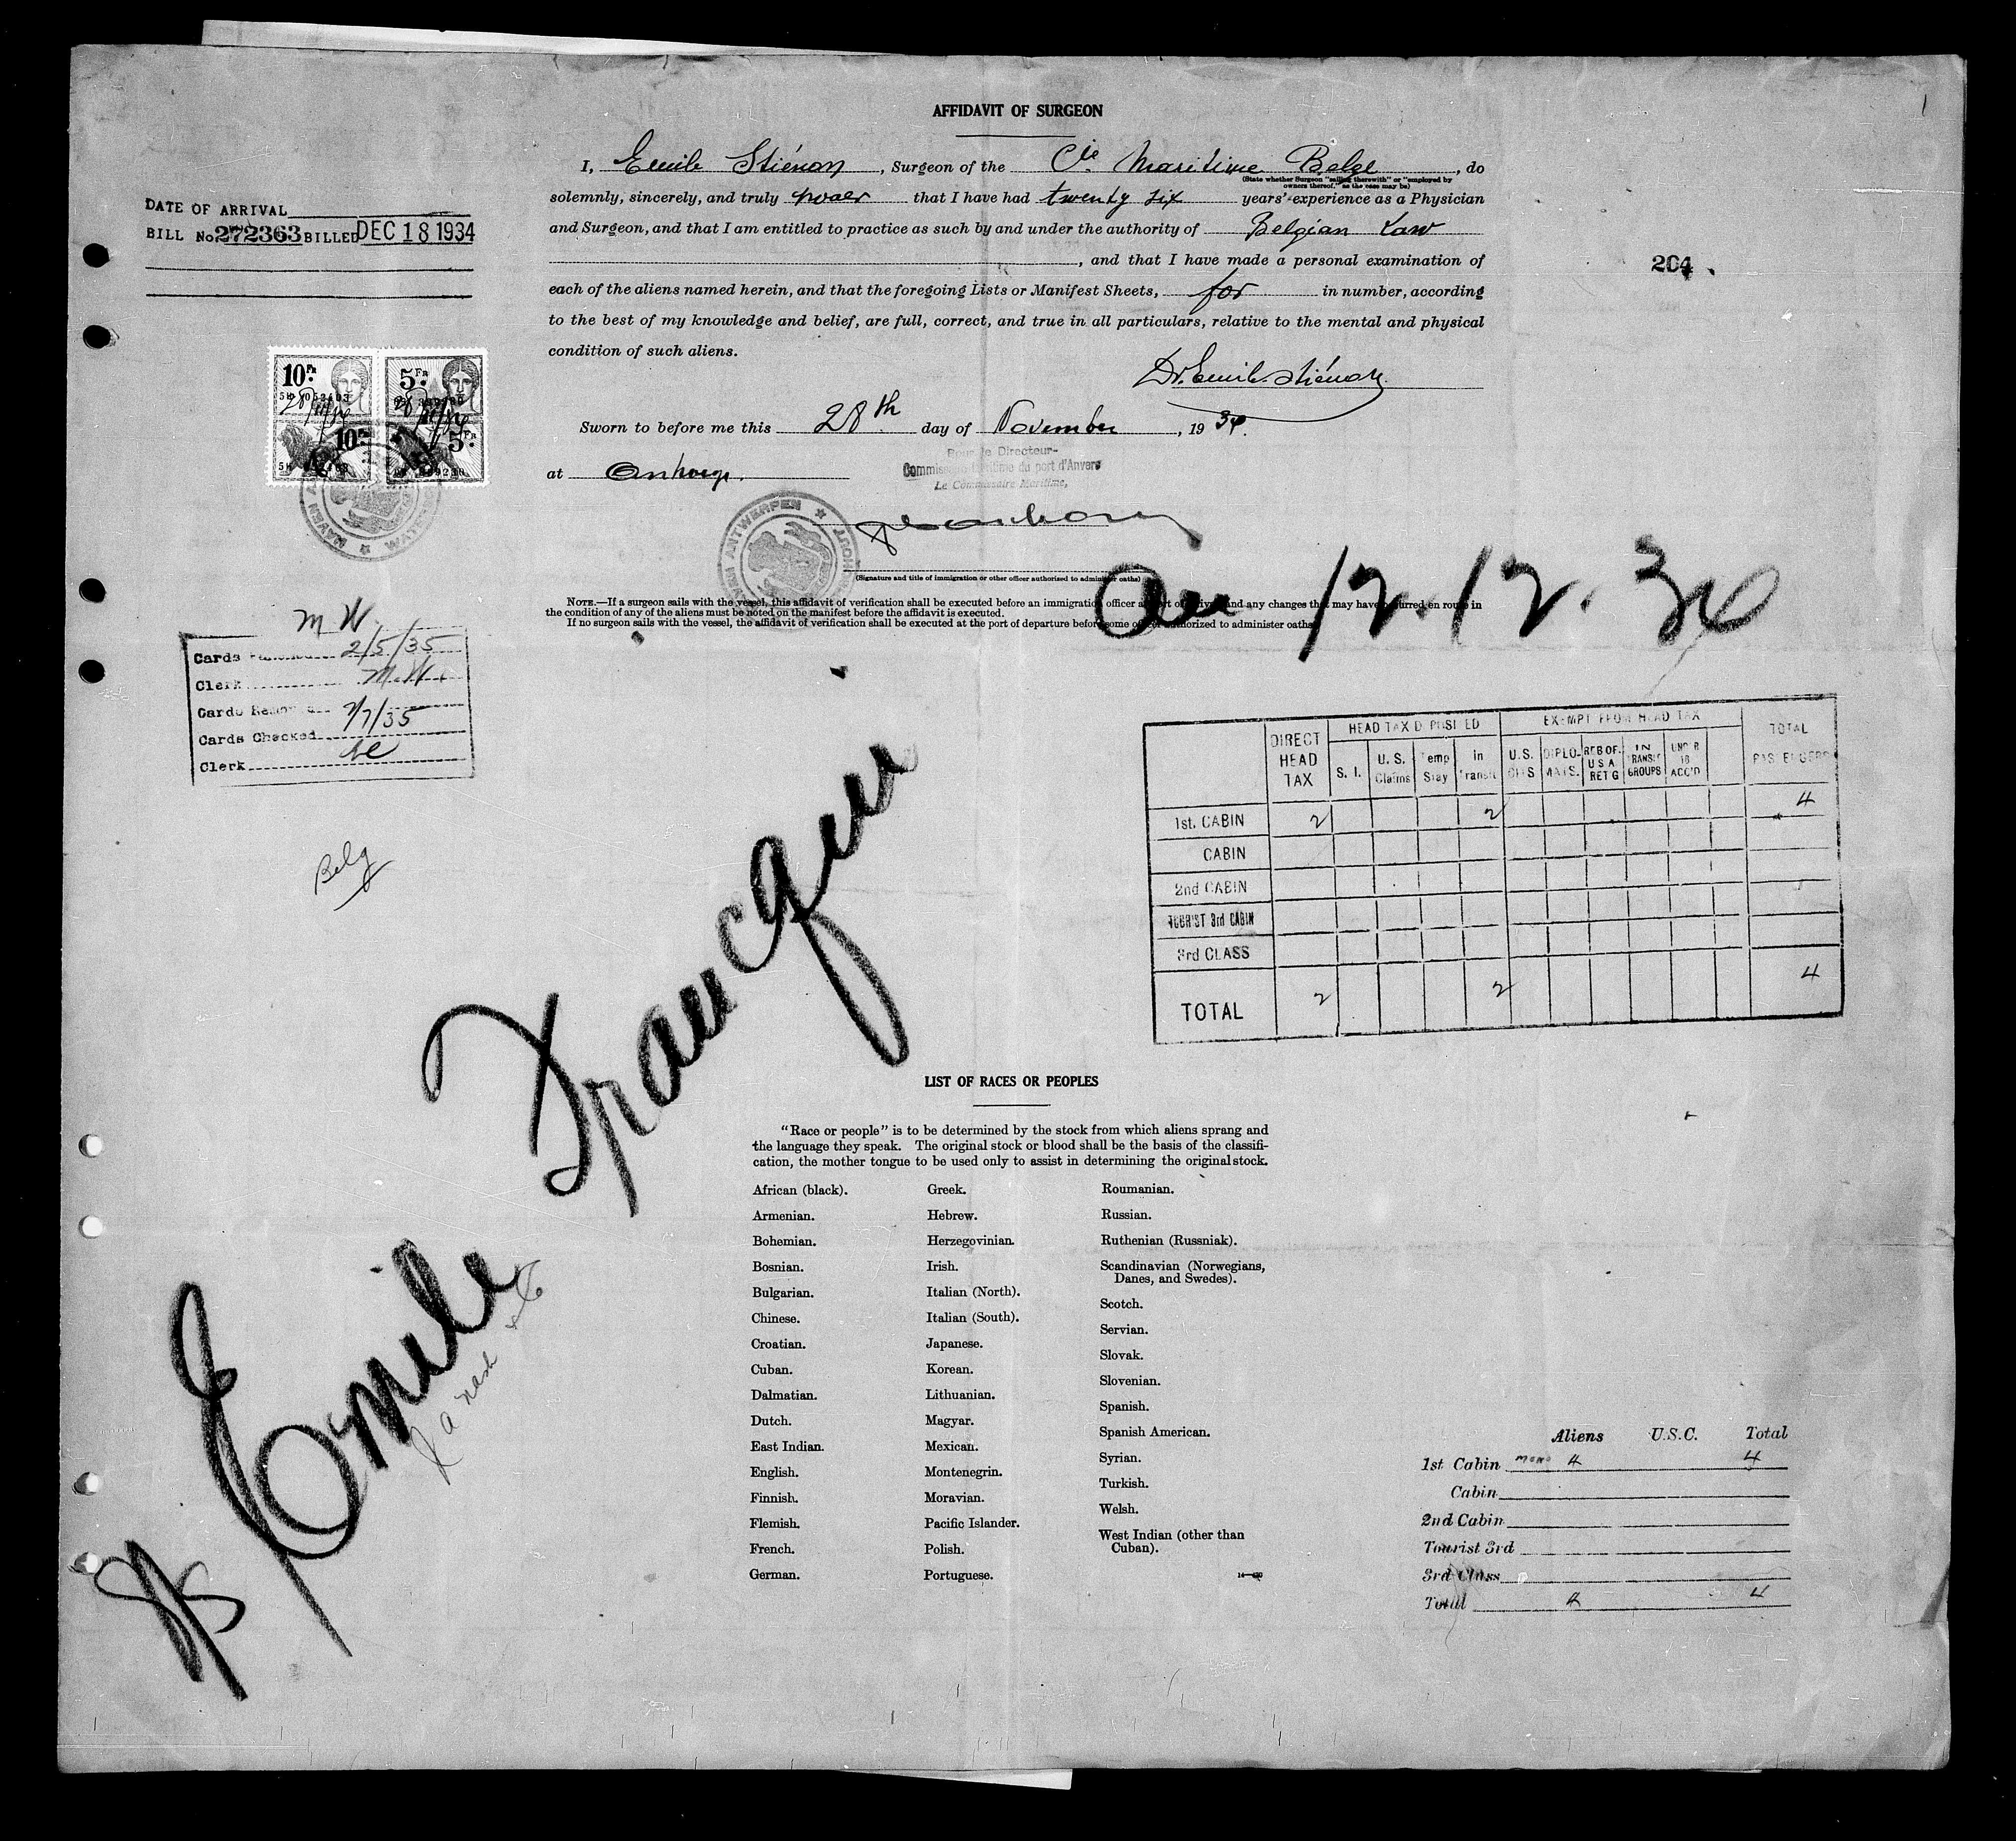 1
AFFIDAVIT OF SURGEON
I, Emile Stiénon, Surgeon of the Cie Maritime Belge, do
(State whether Surgeon "sailing therewith" or "employed by
owners thereof," as the case may be)
solemnly, sincerely, and truly swear that I have had twenty six years' experience as a Physician
and Surgeon, and that I am entitled to practice as such by and under the authority of Belgian Law
, and that I have made a personal examination of
each of the aliens named herein, and that the foregoing Lists or Manifest Sheets, for in number, according
to the best of my knowledge and belief, are full, correct, and true in all particulars, relative to the mental and physical
condition of such aliens.
Dr. Emile Stiénon
Sworn to before me this 28th day of November, 1934.
at
Pour le Directeur-
Commissaire maritime du port d'Anvers
Le Commissaire Maritime,
(Signature and title of immigration or other officer authorized to administer oaths)
NOTE.—If a surgeon sails with the vessel, this affidavit of verification shall be executed before an immigration officer at port of arrival and any changes that may have occurred en route in
the condition of any of the aliens must be noted on the manifest before the affidavit is executed.
If no surgeon sails with the vessel, the affidavit of verification shall be executed at the port of departure before some officer authorized to administer oaths.
DATE OF ARRIVAL
BILL No. 272363 BILLED DEC 18 1934
204
10 Fr. 5 Fr.
28/11/34 28/11/34
10 Fr. 5 Fr.
HAVEN ANTWERPEN
12.12.34
M W.
Cards 2/5/35
Clerk M.W.
Cards 7/7/35
Cards Checked
Clerk
Belg
Emile Francqui
DIRECT HEAD TAX
HEAD TAX DEPOSITED
EXEMPT FROM HEAD TAX
TOTAL PASSENGERS
S. I. U. S. Claims Temp Stay In Transit U.S. CITS DIPLO-MATS. RES OF. U S A RET'G IN TRANSIT GROUPS UND'R 16 ACC'D
1st. CABIN 2 2 4
CABIN
2nd CABIN
TOURIST 3rd CABIN
3rd CLASS
TOTAL 2 2 4
LIST OF RACES OR PEOPLES
"Race or people" is to be determined by the stock from which aliens sprang and
the language they speak. The original stock or blood shall be the basis of the classifi-
cation, the mother tongue to be used only to assist in determining the original stock.
African (black).
Armenian.
Bohemian.
Bosnian.
Bulgarian.
Chinese.
Croatian.
Cuban.
Dalmatian.
Dutch.
East Indian.
English.
Finnish.
Flemish.
French.
German.
Greek.
Hebrew.
Herzegovinian.
Irish.
Italian (North).
Italian (South).
Japanese.
Korean.
Lithuanian.
Magyar.
Mexican.
Montenegrin.
Moravian.
Pacific Islander.
Polish.
Portuguese.
Roumanian.
Russian.
Ruthenian (Russniak).
Scandinavian (Norwegians,
Danes, and Swedes).
Scotch.
Servian.
Slovak.
Slovenian.
Spanish.
Spanish American.
Syrian.
Turkish.
Welsh.
West Indian (other than
Cuban).
Aliens U.S.C. Total
1st Cabin 4 4
Cabin
2nd Cabin
Tourist 3rd
3rd Class
Total 4 4